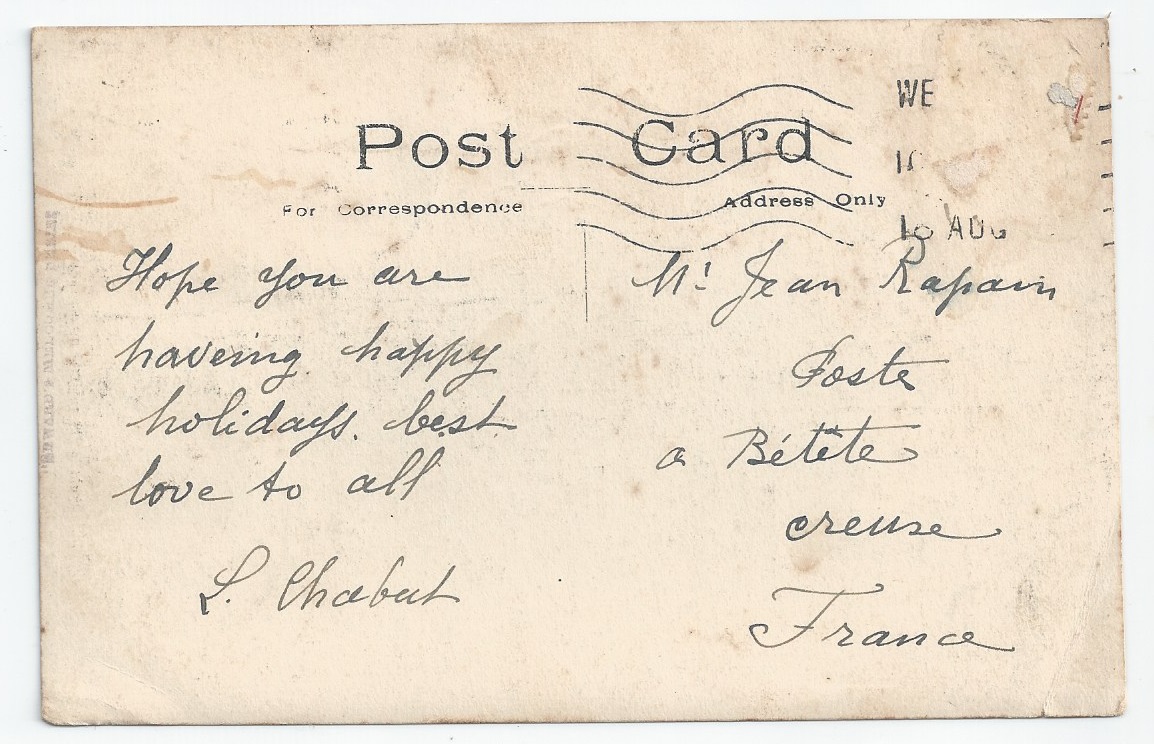 Post Card
For Correspondence
Address Only
WE
10 AUG
Hope you are
haveing happy
holidays. best
love to all
L. Chabut
Mr Jean Rapain
Poste
a Bétête
creuse
France